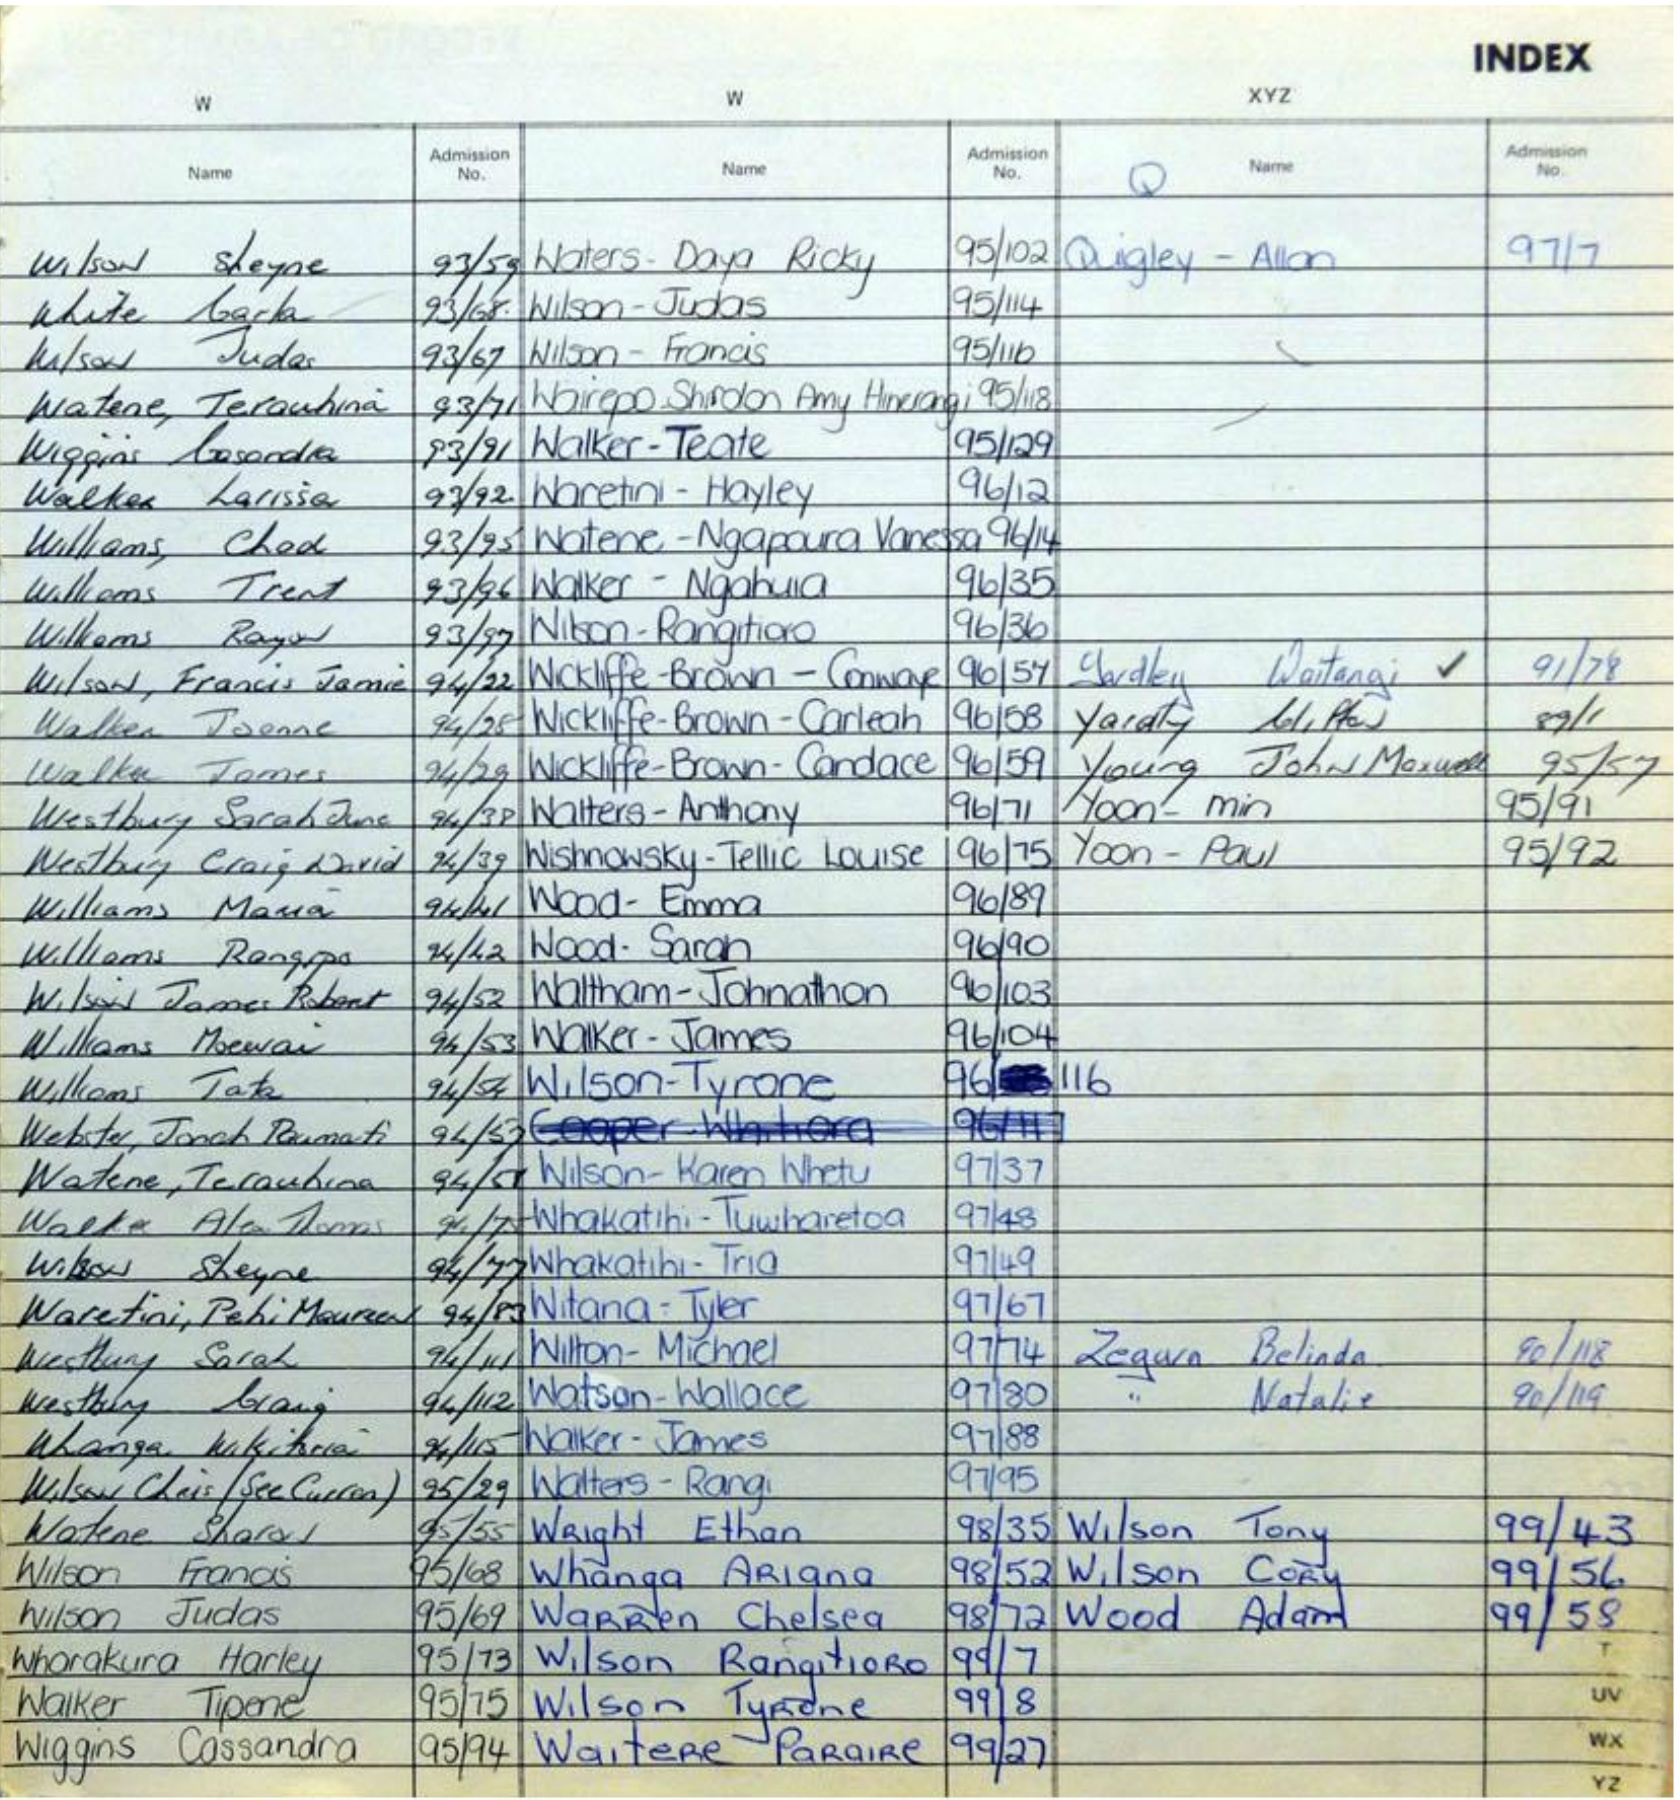 INDEX
W W XYZ
Name Admission No. Name Admission No. Q Name Admission No.
Wilson Sheyne 93/59 Waters - Daya Ricky 95/102 Quigley - Allan 97/7
White Carla 93/68 Wilson - Judas 95/114
Wilson Judas 93/67 Wilson - Francis 95/116
Watene, Terauhina 93/71 Wairepo Shirdon Amy Hinerangi 95/118
Wiggins Casandra 93/91 Walker - Teate 95/129
Walker Larissa 93/92 Waretini - Hayley 96/12
Williams, Chad 93/95 Watene - Ngapoura Vanessa 96/14
Williams Trent 93/96 Walker - Ngahuia 96/35
Williams 93/97 Wilson - Rangitioro 96/36
Wilson, Francis Jamie 94/22 Wickliffe-Brown - Conwaye 96/57 Yardley Waitangi ✓ 91/78
Walker Joanne 94/28 Wickliffe-Brown - Carleah 96/58 Yardly 89/1
Walker James 94/29 Wickliffe-Brown - Candace 96/59 Young John Maxwell 95/57
Westbury Sarah June 94/38 Walters - Anthony 96/71 Yoon - min 95/91
Westbury Craig David 94/39 Wishnowsky - Tellic Louise 96/75 Yoon - Paul 95/92
Williams Maria 94/41 Wood - Emma 96/89
Williams 94/42 Wood - Sarah 96/90
Wilson James Robert 94/52 Waltham - Johnathon 96/103
Williams Moewai 94/53 Walker - James 96/104
Williams Tata 94/54 Wilson - Tyrone 96/ 116
Webster, Jonah Raumati 94/57 Cooper - Whitiora 96/117
Watene, Terauhina 94/58 Wilson - Karen Whetu 97/37
Walker Alex Thomas Whakatihi - Tuwharetoa 97/48
Wilson Sheyne 94/77 Whakatihi - Tria 97/49
Waretini, Pehi Maureen 94/83 Witana - Tyler 97/67
Westbury Sarah 94/111 Wilton - Michael 97/74 Zegwn Belinda 90/118
Westbury Craig 94/112 Watson - Wallace 97/80 " Natalie 90/119
Whanga Wikitoria 94/115 Walker - James 97/88
Wilson Chris (See Curran) 95/29 Walters - Rangi 97/95
Watene Sharon 95/55 Wright Ethan 98/35 Wilson Tony 99/43
Wilson Francis 95/68 Whanga Ariana 98/52 Wilson Cory 99/56
Wilson Judas 95/69 Warren Chelsea 98/72 Wood Adam 99/58
Wharakura Harley 95/73 Wilson Rangitioro 99/7 T
Walker Tipene 95/75 Wilson Tyrone 99/8 UV
Wiggins Cassandra 95/94 Waitere Paraire 99/27 WX
YZ